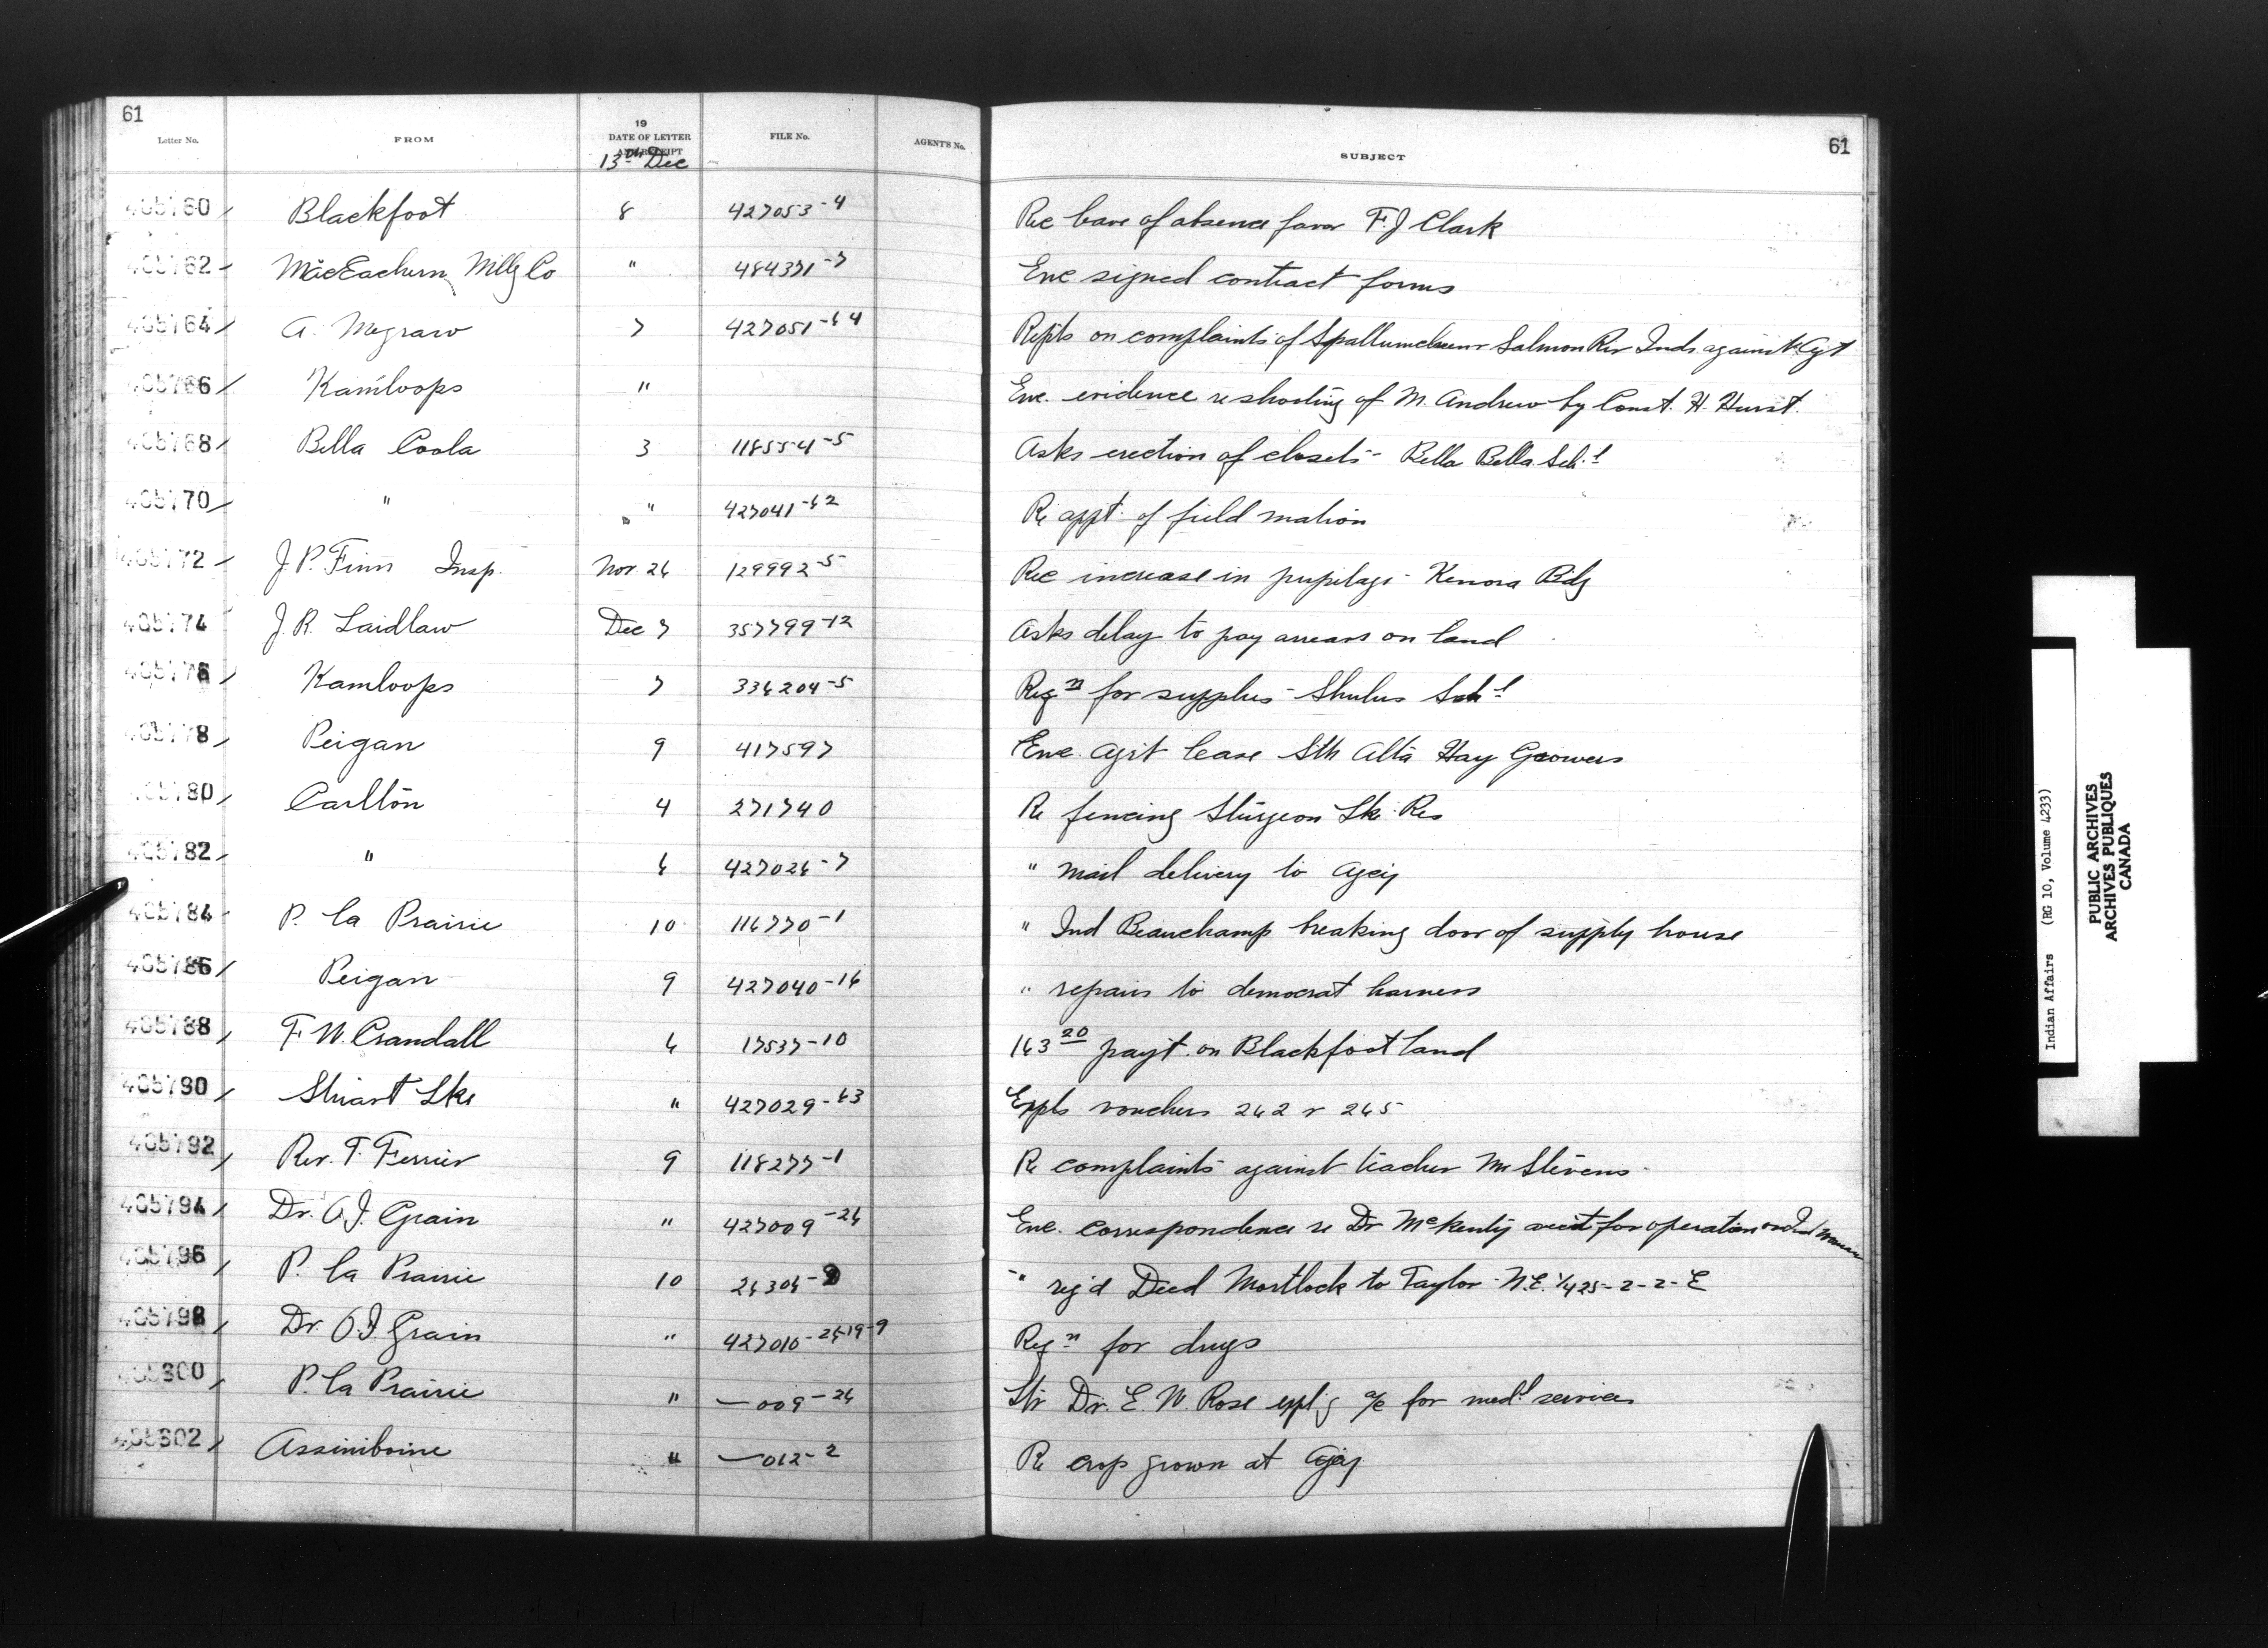 61
61
Letter No. FROM 19 DATE OF LETTER AND RECEIPT FILE No. AGENT'S No. SUBJECT
13th Dec
405760 Blackfoot 8 427053-4 Rec leave of absence favor F. J Clark
405762 MacEachern Millg Co " 484371-7 Enc signed contract forms
405764 A. Megraw 7 427051-64 Repts on complaints of Spallumcheen & Salmon Riv Inds against Agt
405766 Kamloops " Enc. evidence re shooting of M. Andrew by Const. H. Hurst.
405768 Bella Coola 3 118554-5 Asks erection of closets - Bella Bella Schl
405770 " " 427041-62 Re appt. of field matron
405772 J. P. Finn Insp. Nov. 26 129992-5 Rec increase in pupilage - Kenora Bdg
405774 J. R. Laidlaw Dec 7 357799-12 Asks delay to pay arrears on land
405776 Kamloops 7 336204-5 Reqn for supplies - Shulus Schl
405778 Peigan 9 417597 Enc. Agrt lease Sth Alta Hay Growers
405780 Carlton 4 271740 Re fencing Sturgeon Lke Res
405782 " 6 427026-7 " mail delivery to Agcy
405784 P. la Prairie 10 116770-1 " Ind Beauchamp breaking door of supply house
405786 Peigan 9 427040-16 " repairs to democrat harness
405788 F W. Crandall 6 17537-10 163 20 payt. on Blackfoot land
405790 Stuart Lke " 427029-63 Expls vouchers 262 & 265
405792 Rev. T. Ferrier 9 118277-1 Re complaints against teacher Mr Stevens
405794 Dr. O. J. Grain " 427009-26 Enc. correspondence re Dr McKenty acct for operation on Ind Woman
405796 P. la Prairie 10 26306-9 " reg'd Deed Mortlock to Taylor - N.E. 1/4 25-2-2-E
405798 Dr. O. J. Grain " 427010-26-19-9 Reqn for drugs
405800 P. la Prairie " — 009-26 Ltr Dr. E. W. Rose explg a/c for medl services
405802 Assiniboine " — 012-2 Re crop grown at Agcy
Indian Affairs (RG 10, Volume 4233)
PUBLIC ARCHIVES
ARCHIVES PUBLIQUES
CANADA